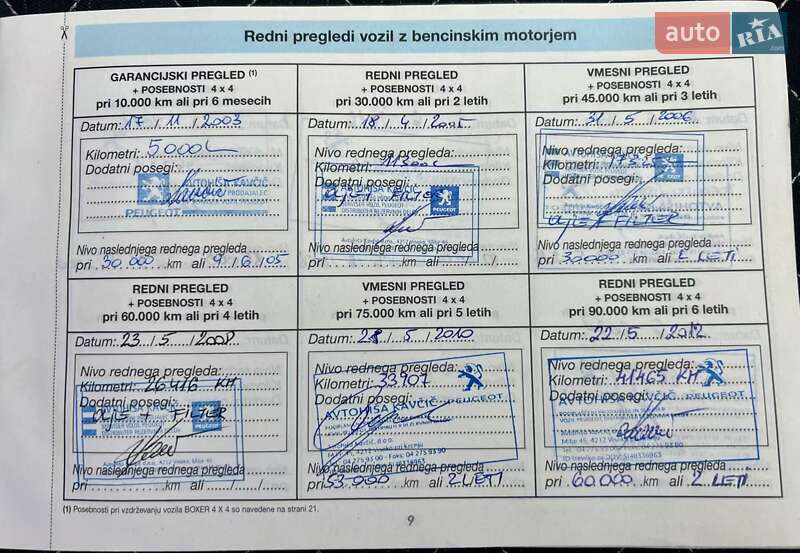 auto RIA .com
Redni pregledi vozil z bencinskim motorjem
GARANCIJSKI PREGLED (1)
+ POSEBNOSTI 4 x 4
pri 10.000 km ali pri 6 mesecih
Datum: 17 / 11 / 2003
Kilometri: 5.000
Dodatni posegi:
AVTOHIŠA KAVČIČ
PEUGEOT
Nivo naslednjega rednega pregleda
pri 30.000 km ali 9 / 6 / 05
REDNI PREGLED
+ POSEBNOSTI 4 x 4
pri 30.000 km ali pri 2 letih
Datum: 18 / 4 / 2005
Nivo rednega pregleda:
Kilometri: 11300
Dodatni posegi:
AVTOHIŠA KAVČIČ
OLJE + FILTER
PEUGEOT
Nivo naslednjega rednega pregleda
pri km ali / /
VMESNI PREGLED
+ POSEBNOSTI 4 x 4
pri 45.000 km ali pri 3 letih
Datum: 31 / 5 / 2006
Nivo rednega pregleda:
Kilometri:
Dodatni posegi:
OLJE + FILTER
Nivo naslednjega rednega pregleda
pri 30.000 km ali 2 LETI
REDNI PREGLED
+ POSEBNOSTI 4 x 4
pri 60.000 km ali pri 4 letih
Datum: 23 / 5 / 2008
Nivo rednega pregleda:
Kilometri: 26476 KM
Dodatni posegi:
OLJE + FILTER
PEUGEOT
Nivo naslednjega rednega pregleda
pri km ali / /
VMESNI PREGLED
+ POSEBNOSTI 4 x 4
pri 75.000 km ali pri 5 letih
Datum: 28 / 5 / 2010
Nivo rednega pregleda:
Kilometri: 33907
Dodatni posegi:
AVTOHIŠA KAVČIČ PEUGEOT
Avtohiša Kavčič, d.o.o.
Milje 45, 4212 Visoko pri Kranju
Nivo naslednjega rednega pregleda
pri 53.000 km ali 2 LETI
REDNI PREGLED
+ POSEBNOSTI 4 x 4
pri 90.000 km ali pri 6 letih
Datum: 22 / 5 / 2012
Nivo rednega pregleda:
Kilometri: 41465 KM
Dodatni posegi:
AVTOHIŠA KAVČIČ PEUGEOT
Nivo naslednjega rednega pregleda
pri 60.000 km ali 2 LETI
(1) Posebnosti pri vzdrževanju vozila BOXER 4 X 4 so navedene na strani 21.
9